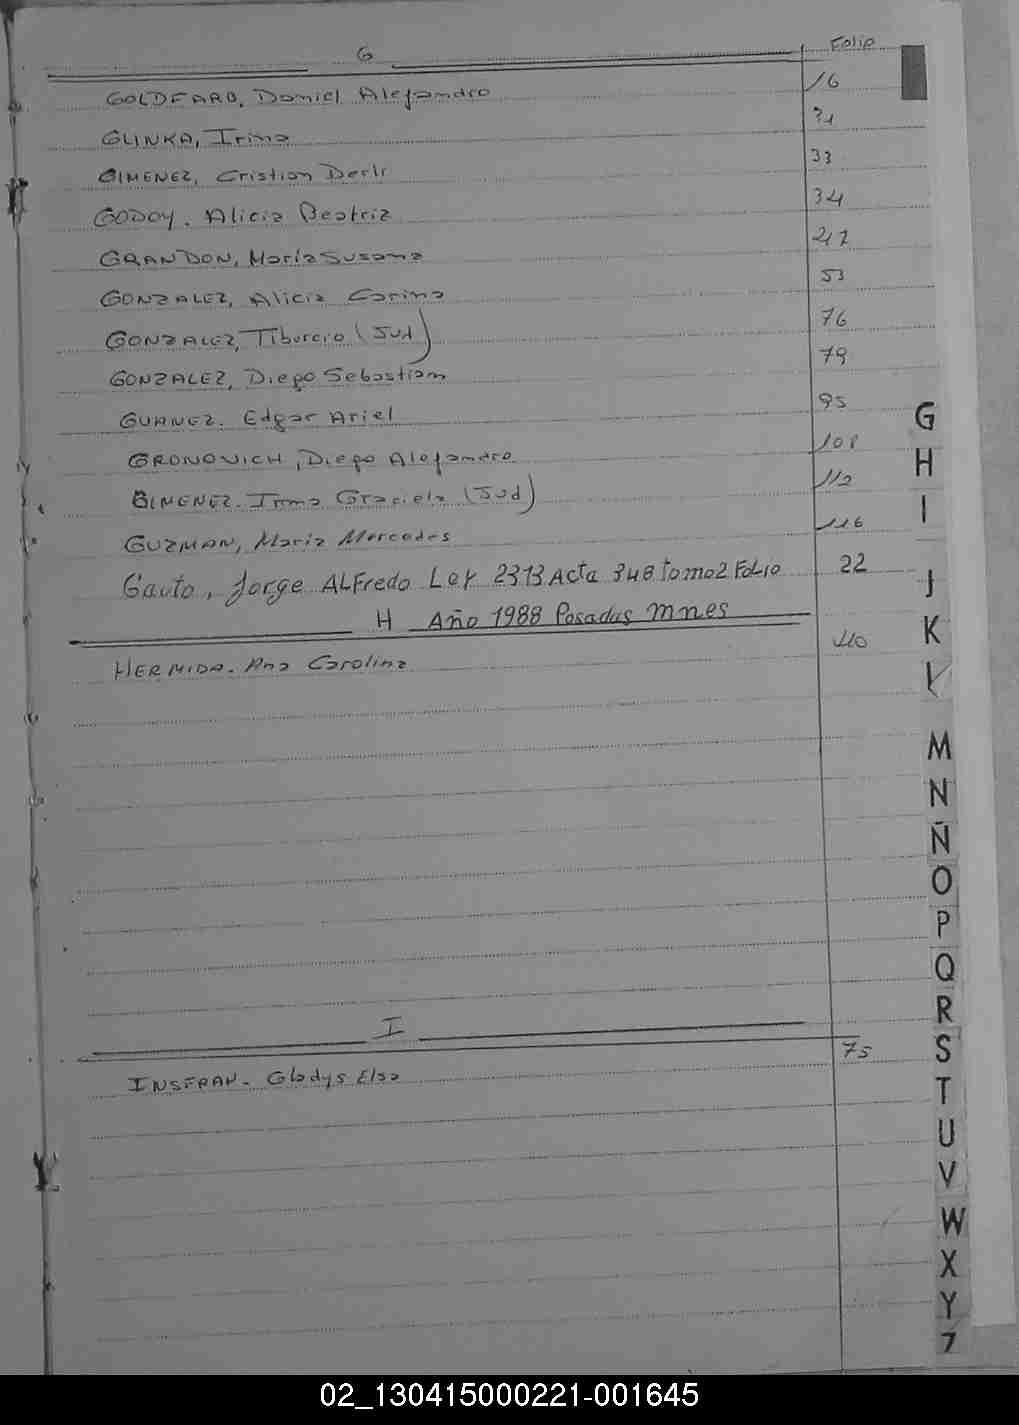 G Folio
GOLDFARB, Daniel Alejandro 16
GLINKA, Irina 31
GIMENEZ, Cristian Derli 33
GODOY. Alicia Beatriz 34
GRANDON, María Susana
GONZALEZ, Alicia Carina 53
GONZALEZ, Tiburcio (Jud) 76
GONZALEZ, Diego Sebastian 79
Edgar Ariel 95
GRONOVICH, Diego Alejandro 108
GIMENEZ. Irma Graciela (Jud) 112
GUZMAN, María Mercedes 116
Gauto, Jorge ALFredo Ley 2373 Acta 348 tomo2 FoLio 22
H Año 1988 Posadas mnes
HERMIDA. Ana Carolina 110
I
INSFRAN. Gladys Elsa 75
G
H
I
J
K
L
M
N
Ñ
O
P
Q
R
S
T
U
V
W
X
Y
Z
02_130415000221-001645